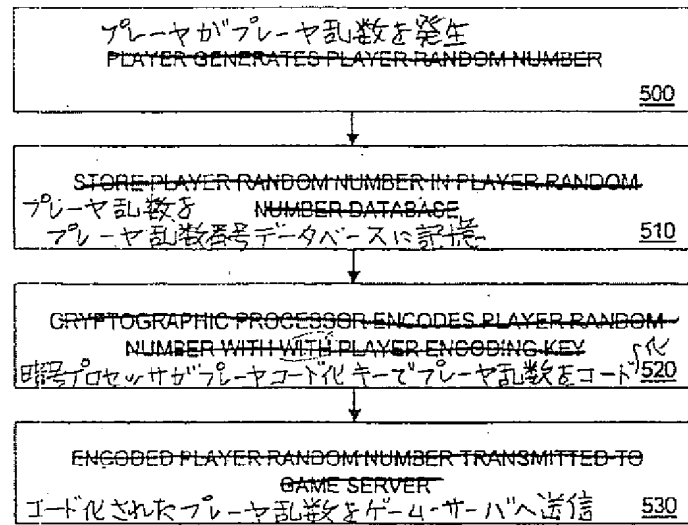 プレーヤがプレーヤ乱数を発生
PLAYER GENERATES PLAYER RANDOM NUMBER
500
STORE PLAYER RANDOM NUMBER IN PLAYER RANDOM
プレーヤ乱数を NUMBER DATABASE
プレーヤ乱数番号データベースに記憶
510
CRYPTOGRAPHIC PROCESSOR ENCODES PLAYER RANDOM
NUMBER WITH WITH PLAYER ENCODING KEY
暗号プロセッサがプレーヤコード化キーでプレーヤ乱数をコード化
520
ENCODED PLAYER RANDOM NUMBER TRANSMITTED TO
GAME SERVER
コード化されたプレーヤ乱数をゲーム・サーバへ送信
530